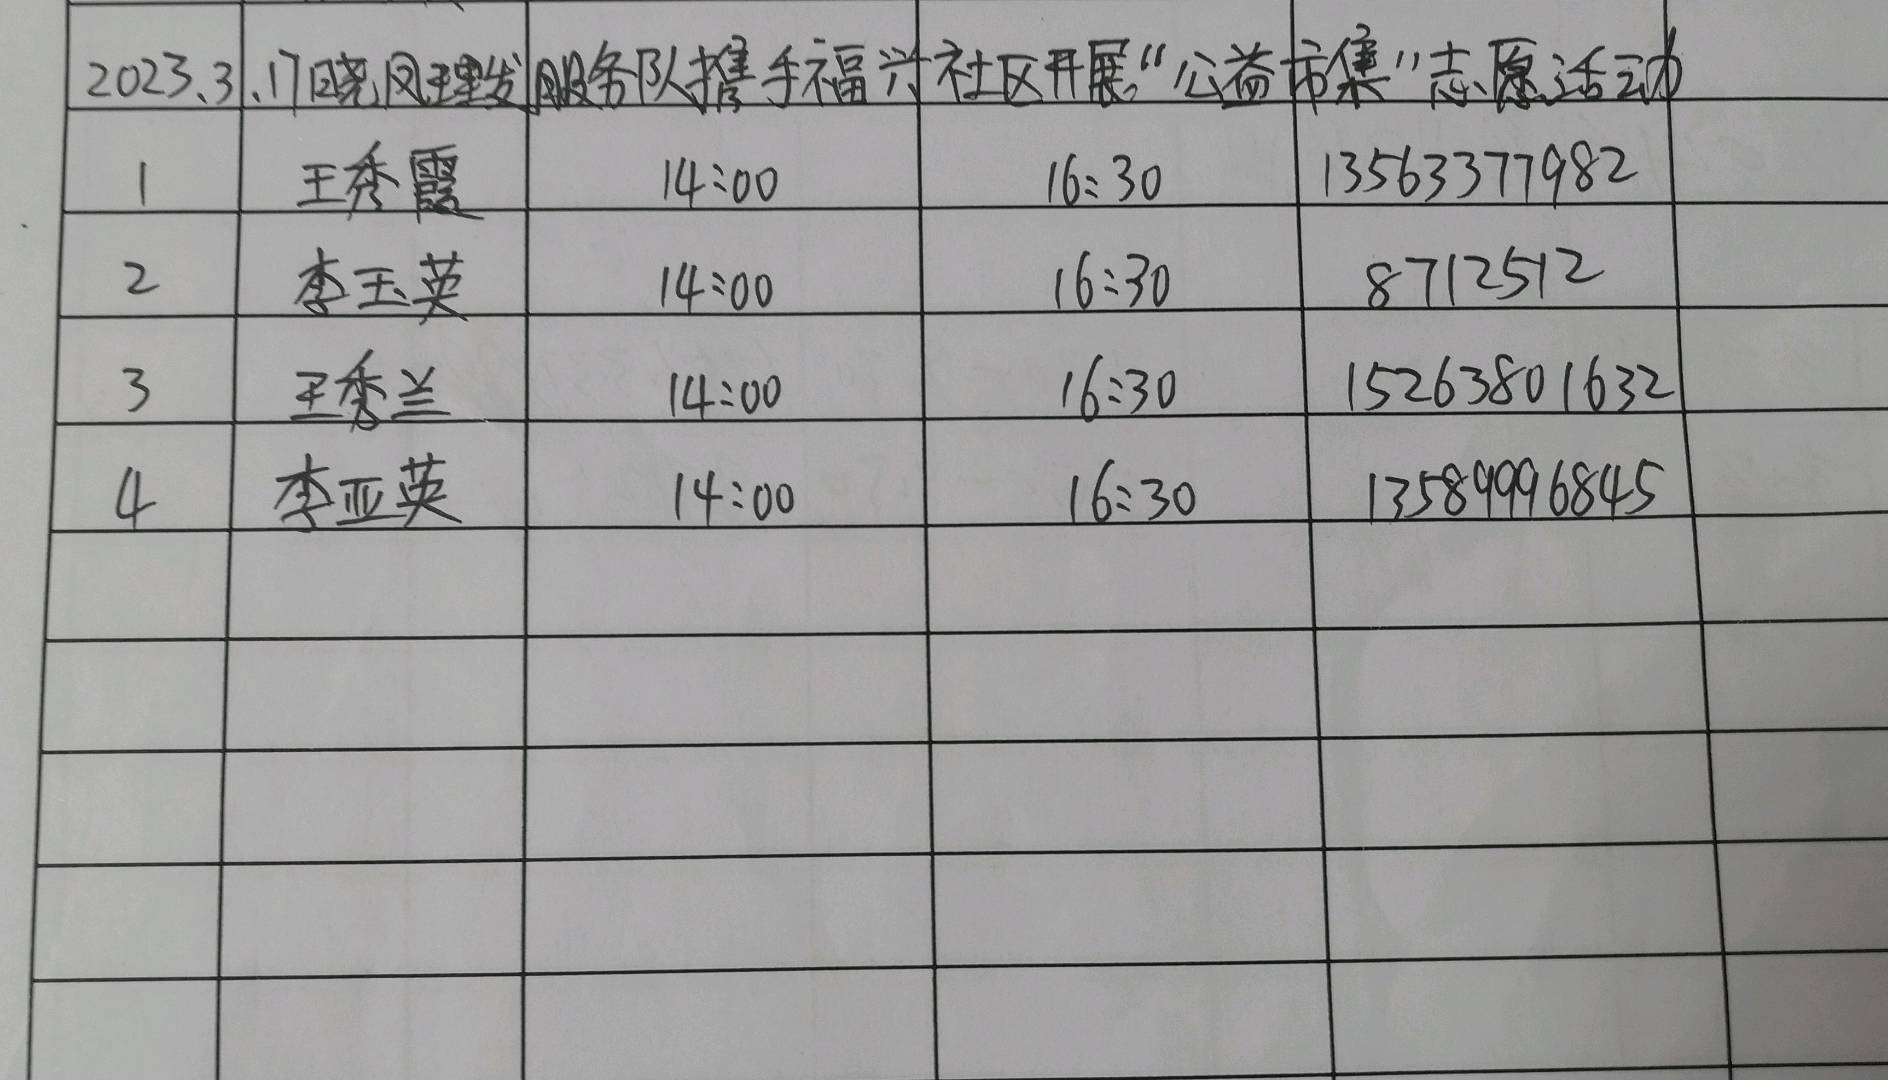 2023.3.17晓凤理发服务队携手福兴社区开展“公益市集”志愿活动
1 王秀霞 14:00 16:30 13563377982
2 李玉英 14:00 16:30 8712512
3 王秀兰 14:00 16:30 15263801632
4 李亚英 14:00 16:30 13589996845